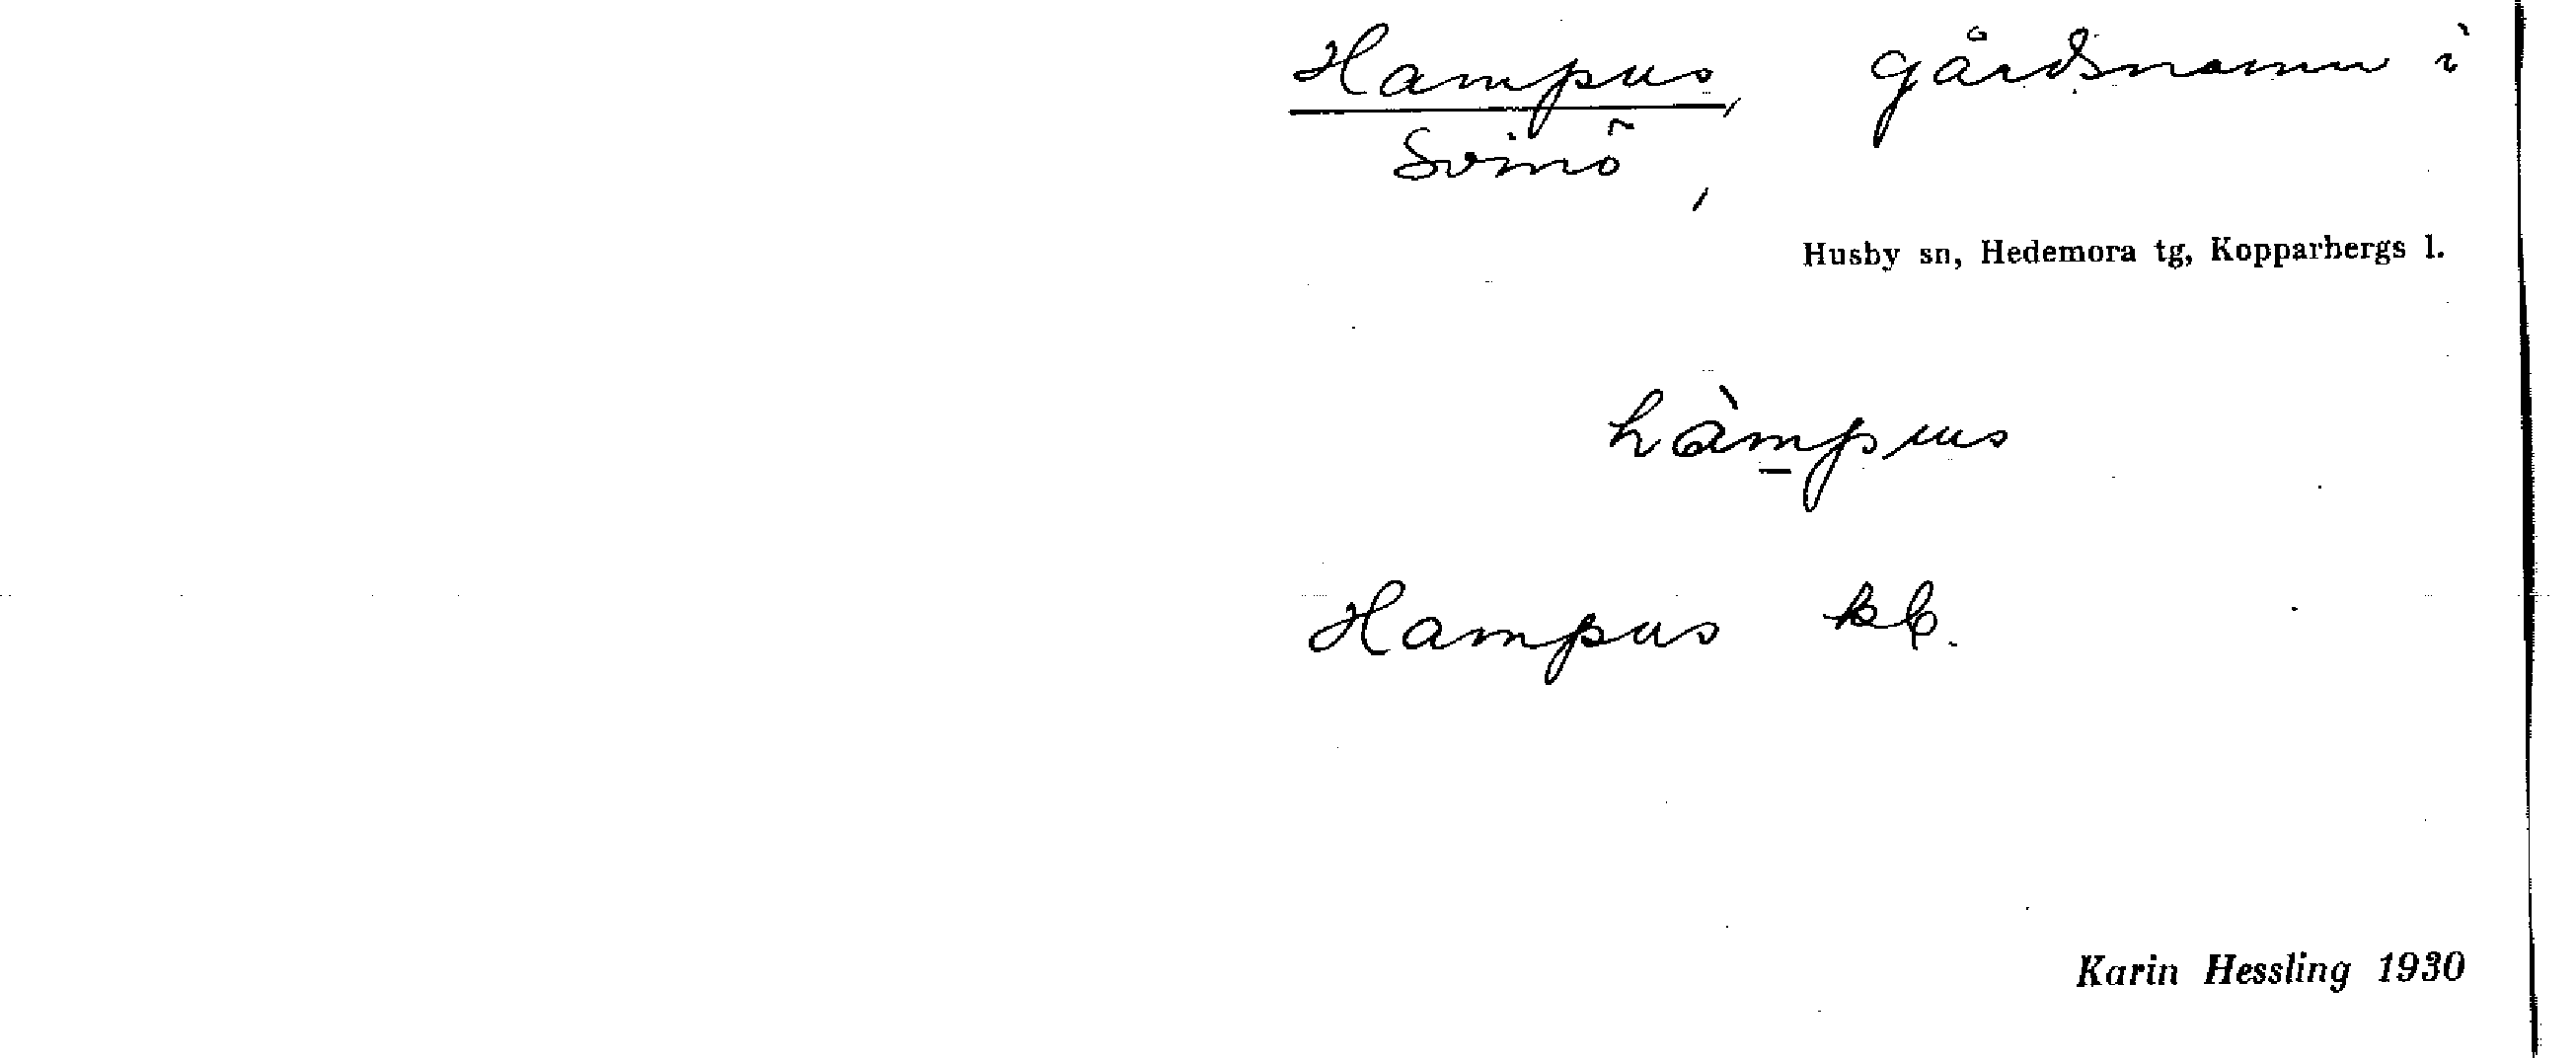 Hampus, gårdsnamn i
Svinö,
Husby sn, Hedemora tg, Kopparbergs l.
hàm̱pus
Hampus kb.
Karin Hessling 1930